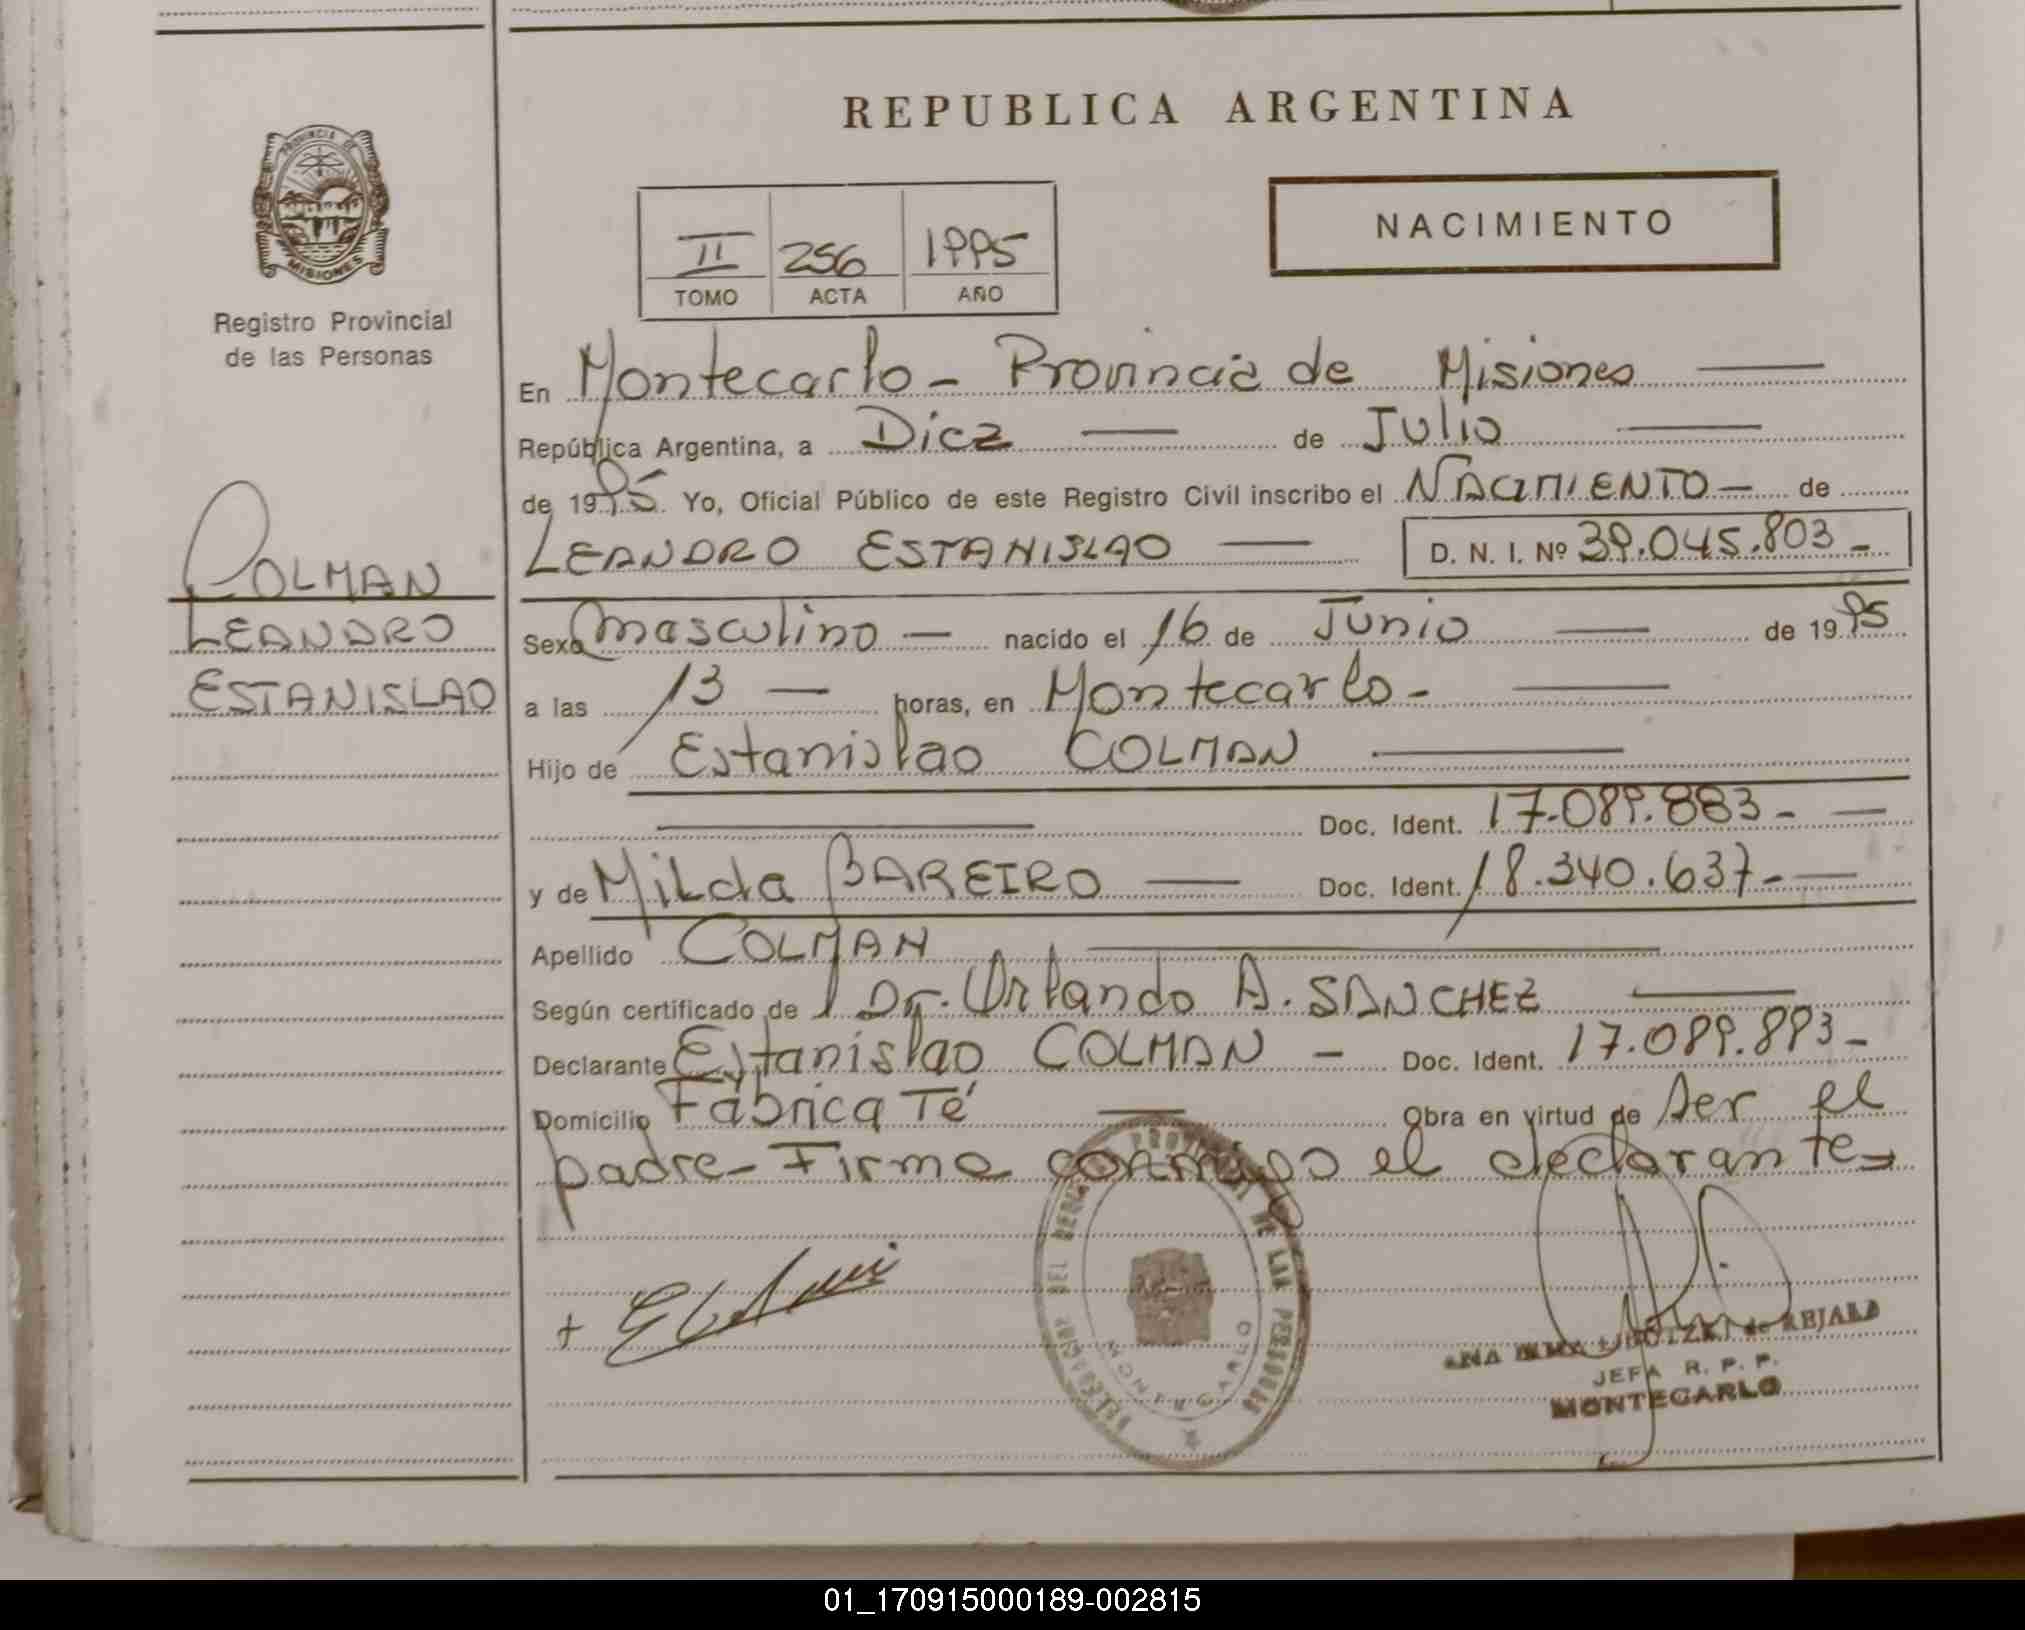 REPUBLICA ARGENTINA
PROVINCIA DE
MISIONES
Registro Provincial
de las Personas
NACIMIENTO
II 256 1995
TOMO ACTA AÑO
En Montecarlo - Provincia de Misiones
República Argentina, a Diez de Julio
de 1995 Yo, Oficial Público de este Registro Civil inscribo el NACIMIENTO - de
LEANDRO ESTANISLAO D. N. I. Nº 39.045.803-
COLMAN
LEANDRO
ESTANISLAO
Sexo masculino - nacido el 16 de Junio de 1995
a las 13 horas, en Montecarlo-
Hijo de Estanislao COLMAN
Doc. Ident. 17.089.883-
y de Milda BAREIRO Doc. Ident. 18.340.637-
Apellido COLMAN
Según certificado de Dr. Orlando A. SANCHEZ
Declarante Estanislao COLMAN - Doc. Ident. 17.089.893-
Domicilio Fábrica Té Obra en virtud de ser el
padre- Firma conmigo el declarante=
MONTECARLO
de REJALA
JEFA R. P. P.
MONTECARLO
01_170915000189-002815